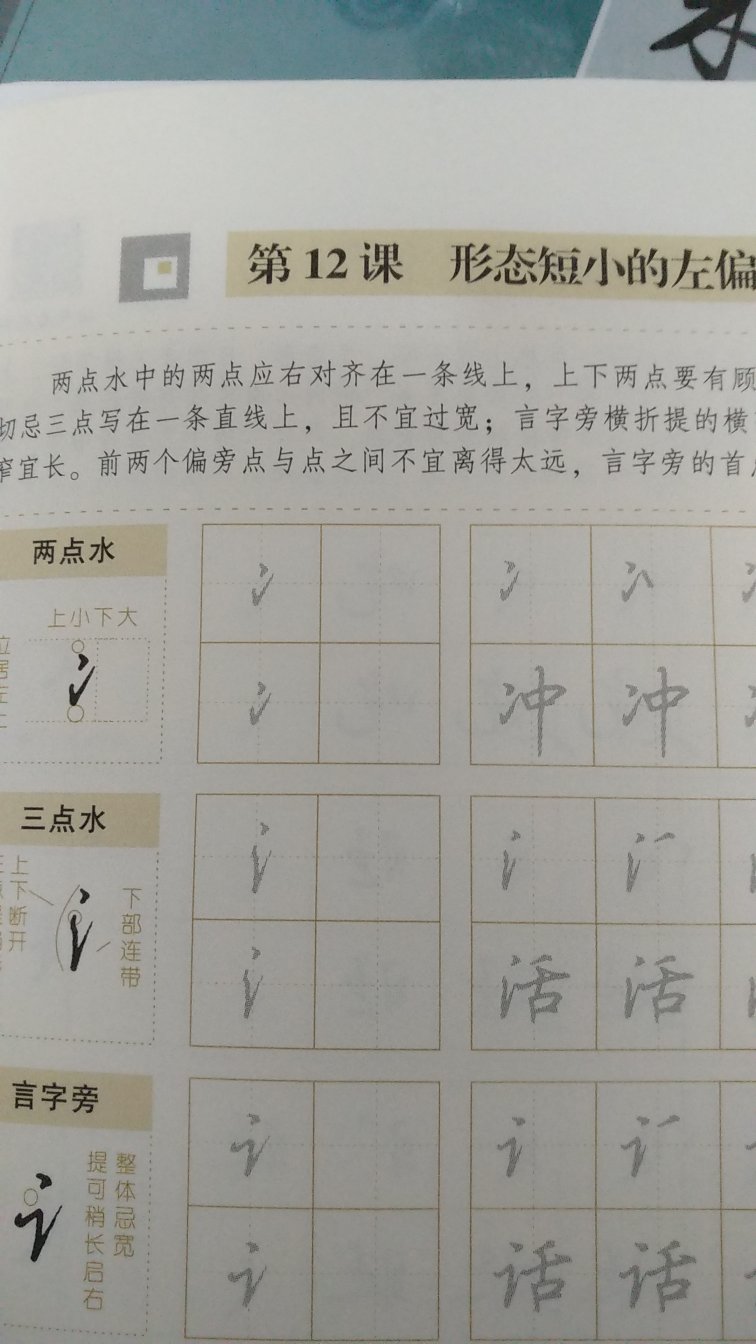 第12课 形态短小的左偏
两点水中的两点应右对齐在一条线上，上下两点要有顾
切忌三点写在一条直线上，且不宜过宽；言字旁横折提的横
窄宜长。前两个偏旁点与点之间不宜离得太远，言字旁的首
两点水
上小下大
冫 冫 冫
冫 冲 冲
三点水
上下断开
下部连带
氵 氵 氵
氵 活 活
言字旁
整体忌宽
提可稍长启右
讠 讠 讠
讠 话 话